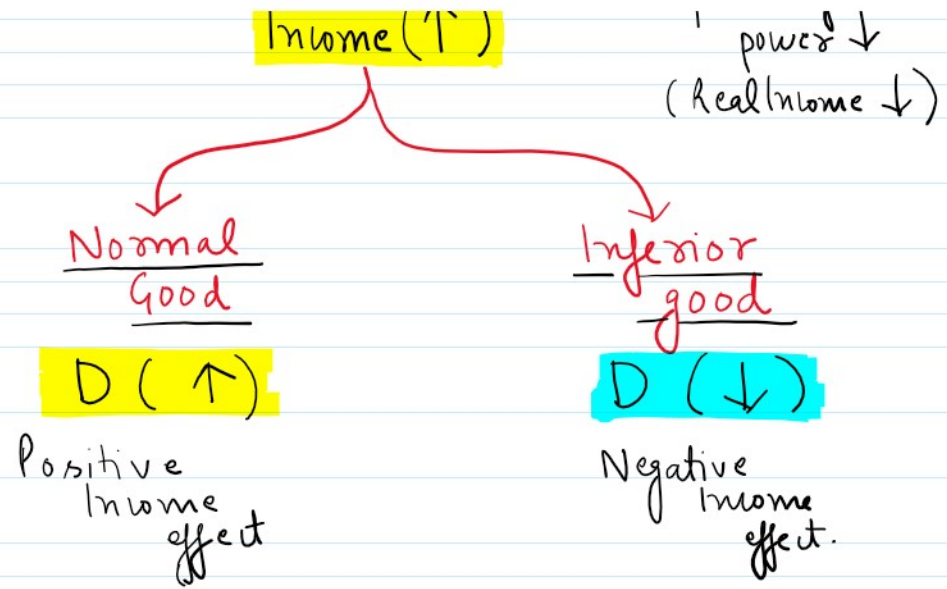 Income (↑)
power ↓
(Real Income ↓)
Normal
Good
Inferior
good
D (↑)
D (↓)
Positive
Income
effect
Negative
Income
effect.